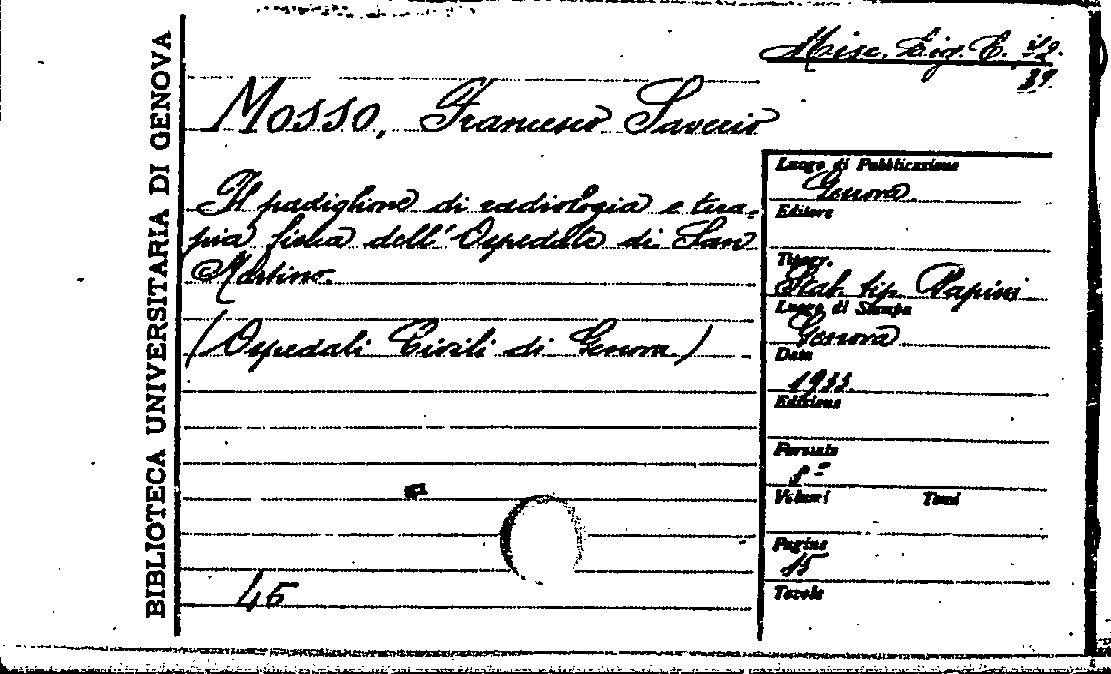 BIBLIOTECA UNIVERSITARIA DI GENOVA
Misc. Lig. E.
39.
Mosso, Francesco Saverio
Il padiglione di radiologia e tera-
pia fisica dell'Ospedale di San
Martino.
(Ospedali Civili di Genova)
46
Luogo di Pubblicazione
Genova
Editore
Tipogr.
Stab. tip. Papini
Luogo di Stampa
Genova
Data
1933
Edizione
Formato
8°
Volumi Tomi
Pagine
15
Tavole